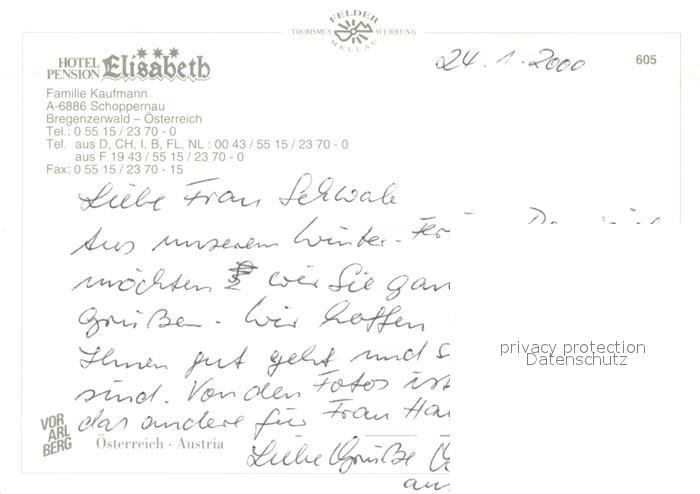 FELDER
TOURISMUS WERBUNG
MELLAU
24.1.2000
605
HOTEL
PENSION Elisabeth
Familie Kaufmann
A-6886 Schoppernau
Bregenzerwald – Österreich
Tel.: 0 55 15 / 23 70 - 0
Tel. aus D, CH, I, B, FL, NL : 00 43 / 55 15 / 23 70 - 0
aus F 19 43 / 55 15 / 23 70 - 0
Fax: 0 55 15 / 23 70 - 15
Liebe Frau Schwab
Aus unserem Winter-
möchten wir Sie
grüßen. Wir hoffen
Ihnen gut geht und
sind. Von den Fotos ist
das andere für Frau
Liebe Grüße
privacy protection
Datenschutz
VOR
ARL
BERG
Österreich · Austria